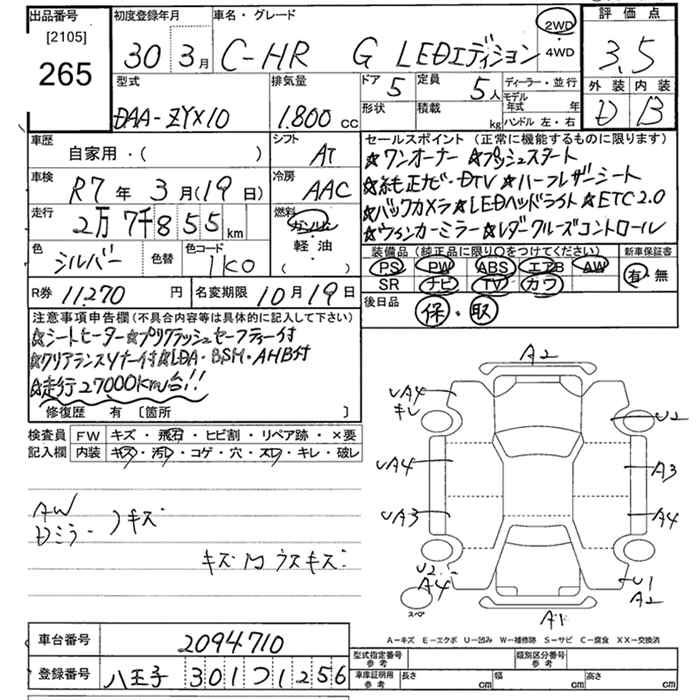 出品番号 初度登録年月 車名・グレード 評価点
[2105]
265
30 3月 C-HR G LEDエディション 2WD ・ 4WD 3.5
型式 排気量 ドア 5 定員 5人 ディーラー・並行 外装 内装
DAA-ZYX10 1.800 cc 形状 積載 kg モデル年式 年 D B
ハンドル 左・右
車歴 シフト セールスポイント (正常に機能するものに限ります)
自家用・( ) AT ★ワンオーナー ★プッシュスタート
車検 冷房 ★純正ナビ・DTV ★ハーフレザーシート
R7年 3月(19日) AAC ★バックカメラ ★LEDヘッドライト ★ETC2.0
走行 燃料 ★ウィンカーミラー ★レダークルーズコントロール
2万7千855km ガソリン・軽油・
色 色替 色コード 装備品 (純正品に限り○をつけてください) 新車保証書
シルバー 1K0 PS PW ABS エアB AW 有・無
SR ナビ TV カワ
R券 11,270 円 名変期限 10月19日 後日品 保・取
注意事項申告欄(不具合内容等は具体的に記入して下さい)
★シートヒーター★プリクラッシュセーフティー付
★クリアランスソナー付★LDA・BSM・AHB付
★走行27000km台!!
修復歴 有 〔箇所 〕
検査員 FW キズ・飛石・ヒビ割・リペア跡・×要
記入欄 内装 キズ・汚レ・コゲ・穴・スレ・キレ・破レ
AW
Dミラー キズ
キズ 凹 ウスキズ
A2
UA4
キレ
U2
UA4
A3
UA3
A4
U2
A4
U1
A2
A1
スペア
A−キズ E−エクボ U−凹み W−補修跡 S−サビ C−腐食 XX−交換済
車台番号 2094710
登録番号 八王子 301 つ 1256
型式指定番号 参考 類別区分番号 参考
車庫証明用 参考 長さ cm 幅 cm 高さ cm